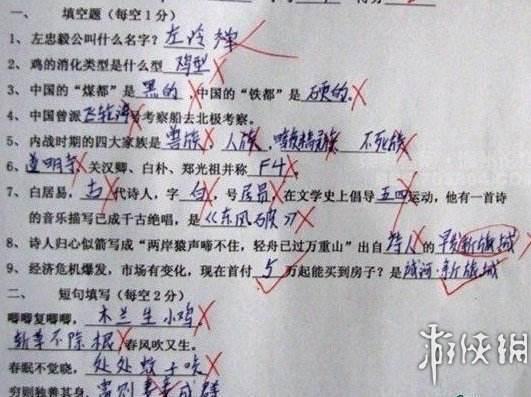 一、 填空题（每空1分）
1、左忠毅公叫什么名字？左冷禅
2、鸡的消化类型是什么型 鸡型
3、中国的“煤都”是 黑的 ，中国的“铁都”是 硬的。
4、中国曾派 飞轮海 号考察船去北极考察。
5、内战时期的四大家族是 兽族、人族、暗夜精灵族 不死族
6、道明寺、关汉卿、白朴、郑光祖并称 F4 。
7、白居易，古 代诗人，字 白 ，号 居易 ，在文学史上倡导 五四 运动，他有一首诗
的音乐描写已成千古绝唱，是《东风破》
8、诗人归心似箭写成“两岸猿声啼不住，轻舟已过万重山”出自 诗人 的
9、经济危机爆发，市场有变化，现在首付 5 万起能买到房子？是 新旅城
二、 短句填写（每空2分）
唧唧复唧唧， 木兰生小鸡。
斩草不除根，春风吹又生。
春眠不觉晓， 处处蚊子咬
穷则独善其身， 富则妻妾成群
游侠网